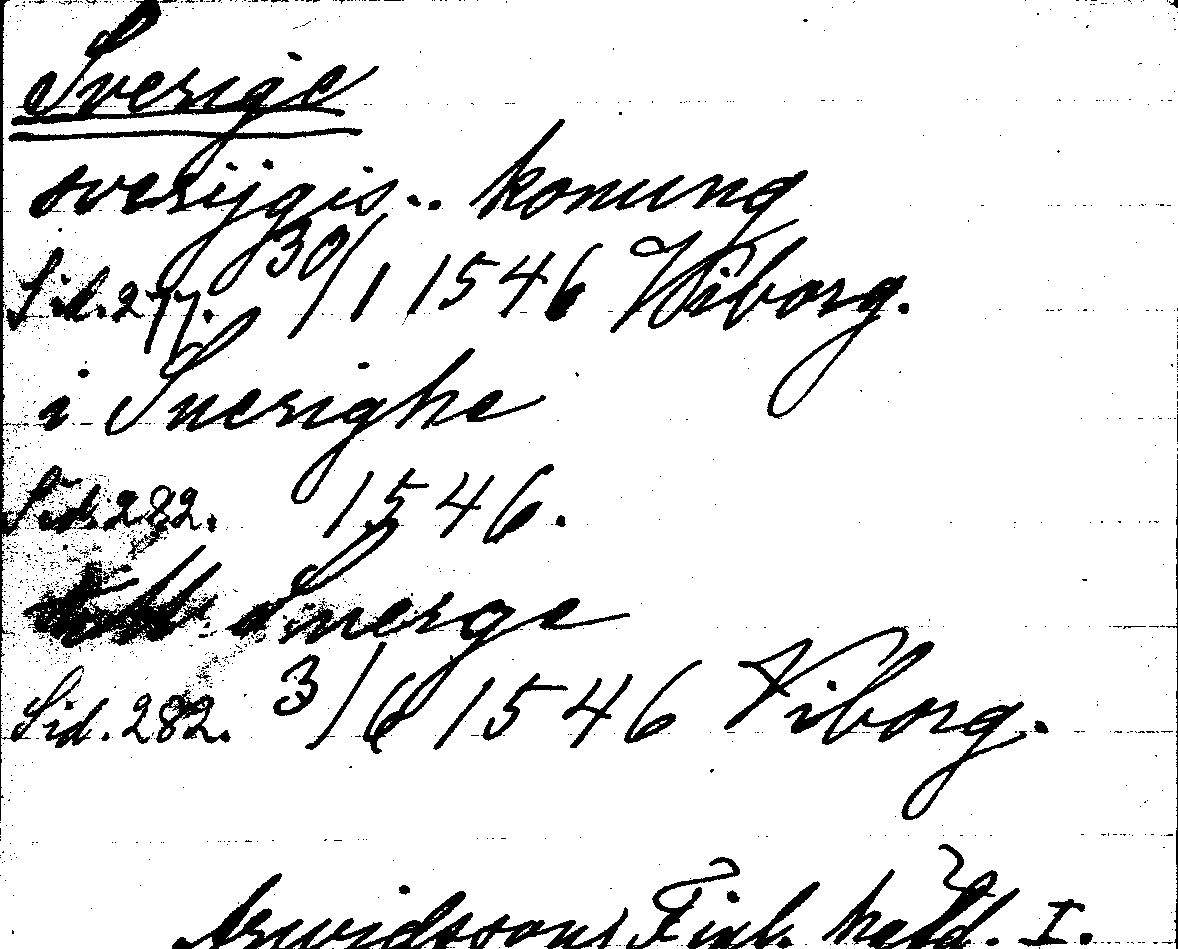 Sverige
sverijgis.. konung
Sid. 277. 30/1 1546 Viborg.
i Suerighe
Sid. 282. 1546.
till Suerge
Sid. 282. 3/6 1546 Viborg.
Arwidssons Finl. häfd. I.